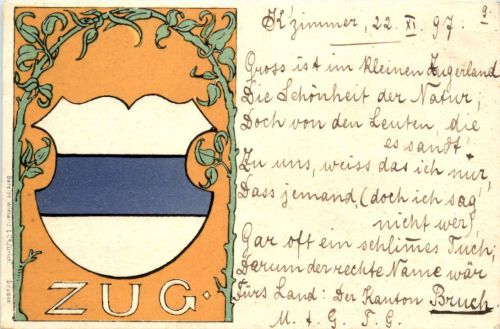 K'zimmer, 22. XI. 97. 9.
Gross ist im kleinen Zugerland
Die Schönheit der Natur,
Doch von den Leuten, die
es sandt
Zu uns, weiss das ich nur,
Dass jemand (doch ich sag
nicht wer)
Gar oft ein schlim̄es Tuch;
Darum der rechte Name wär
Fürs Land: Der Kanton Bruch
M. + G. F. G.
ZUG.